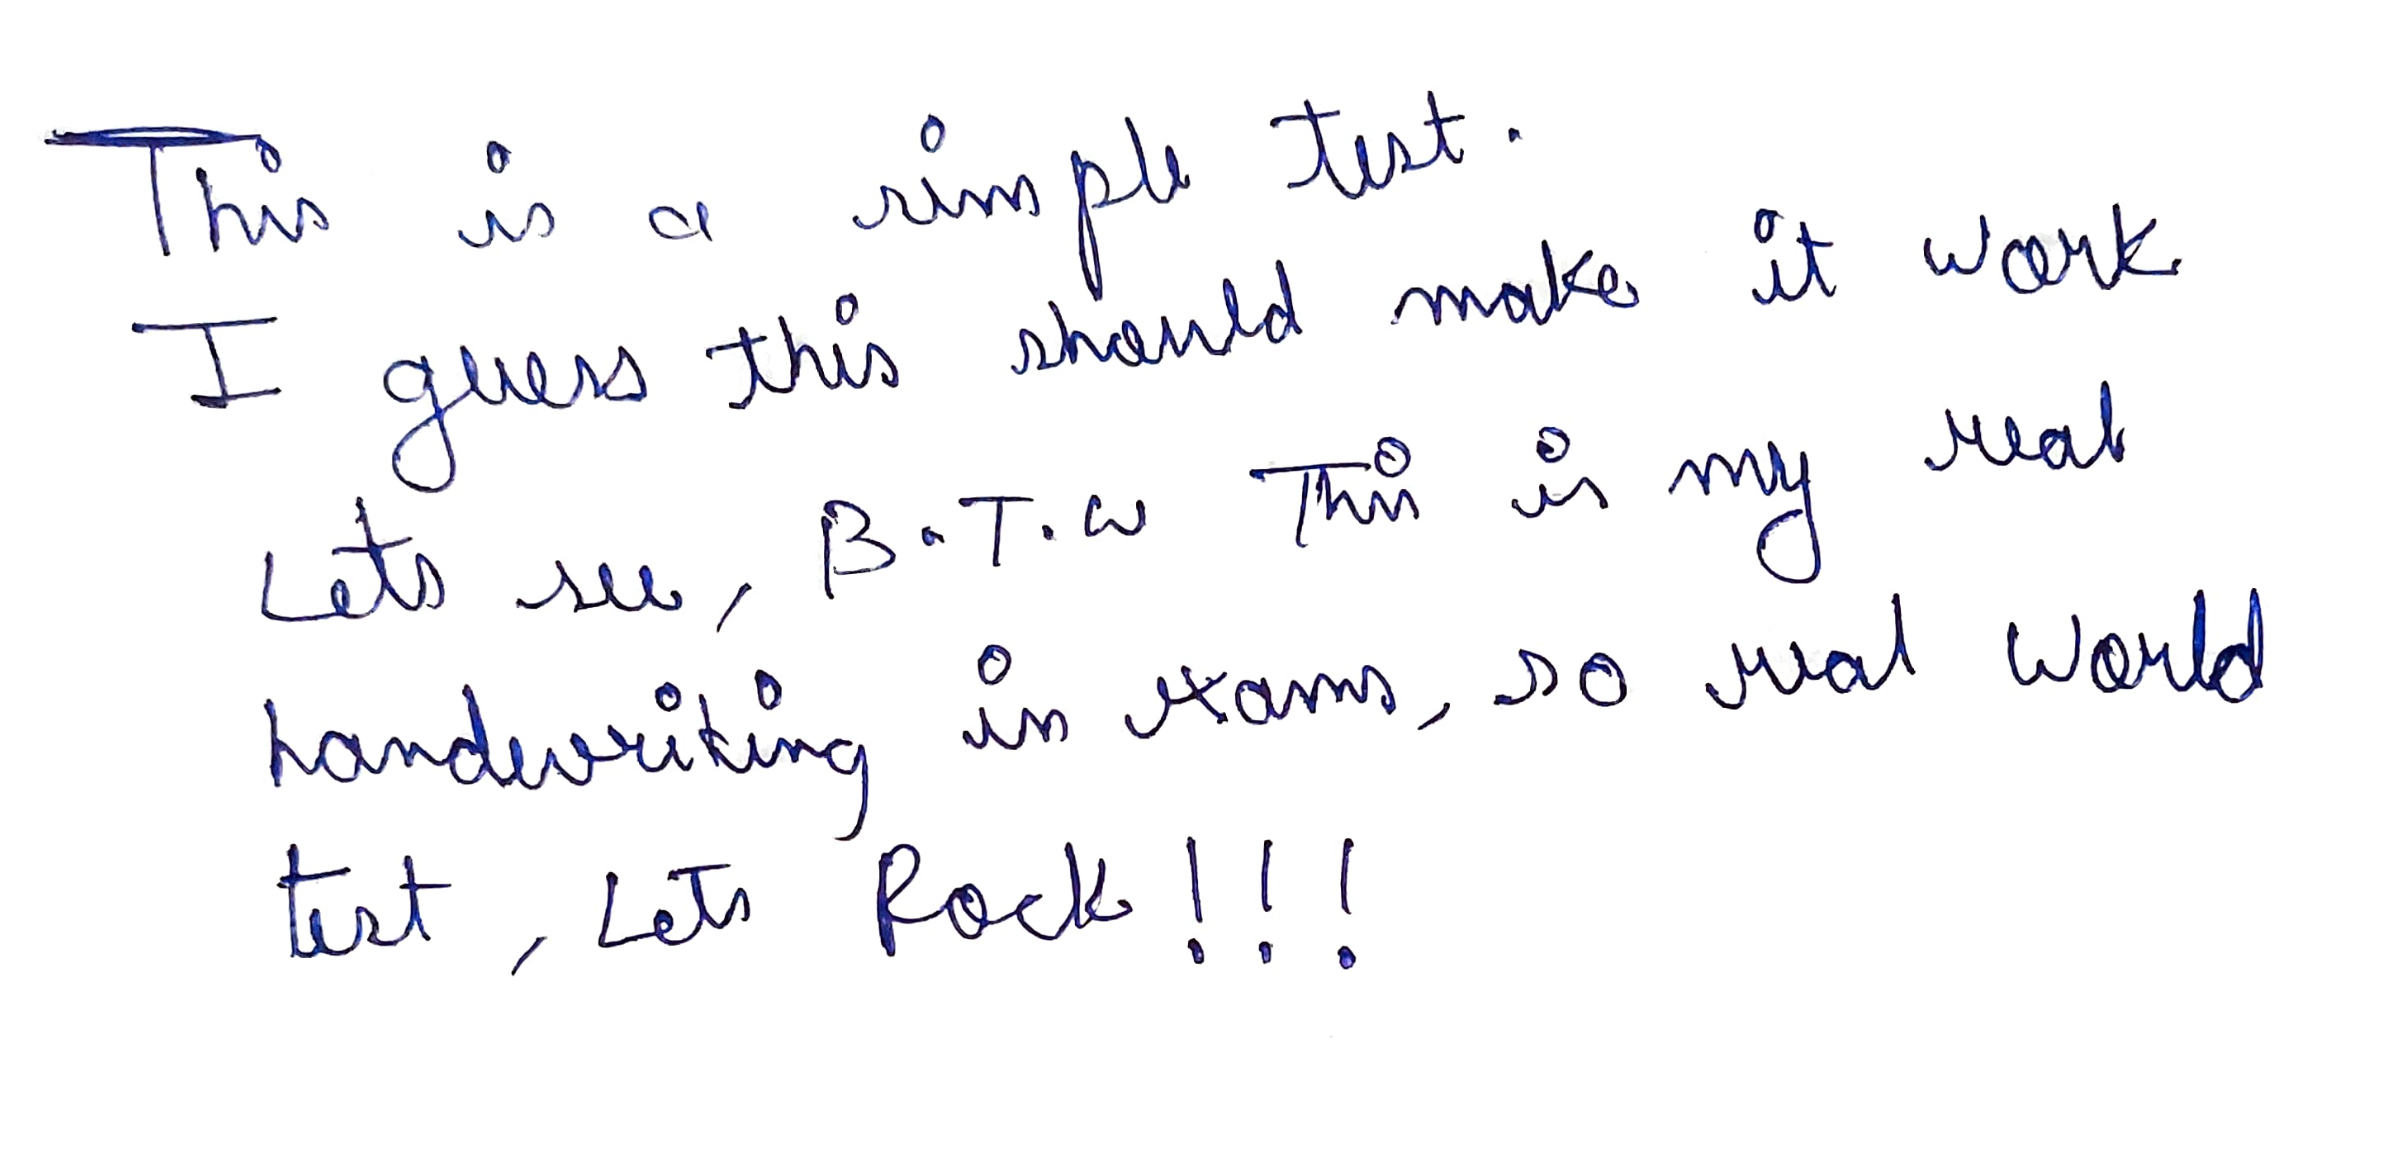 This is a simple test.
I guess this should make it work
Lets see, B.T.W This is my real
handwriting in exams, so real world
test, Lets Rock!!!